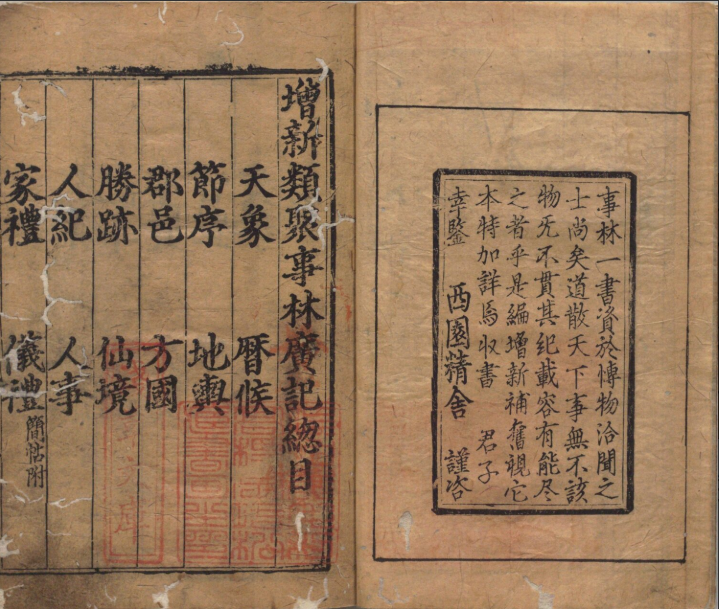 事林一書資於博物洽聞之
士尚矣道散天下事無不該
物旡不貫其紀載容有能尽
之者乎是編增新補舊視它
本特加詳焉収書 君子
幸鑒 西園精舍 謹咨
增新類聚事林廣記總目
天象 曆候
節序 地輿
郡邑 方國
勝跡 仙境
人紀 人事
家禮 儀禮簡帖附